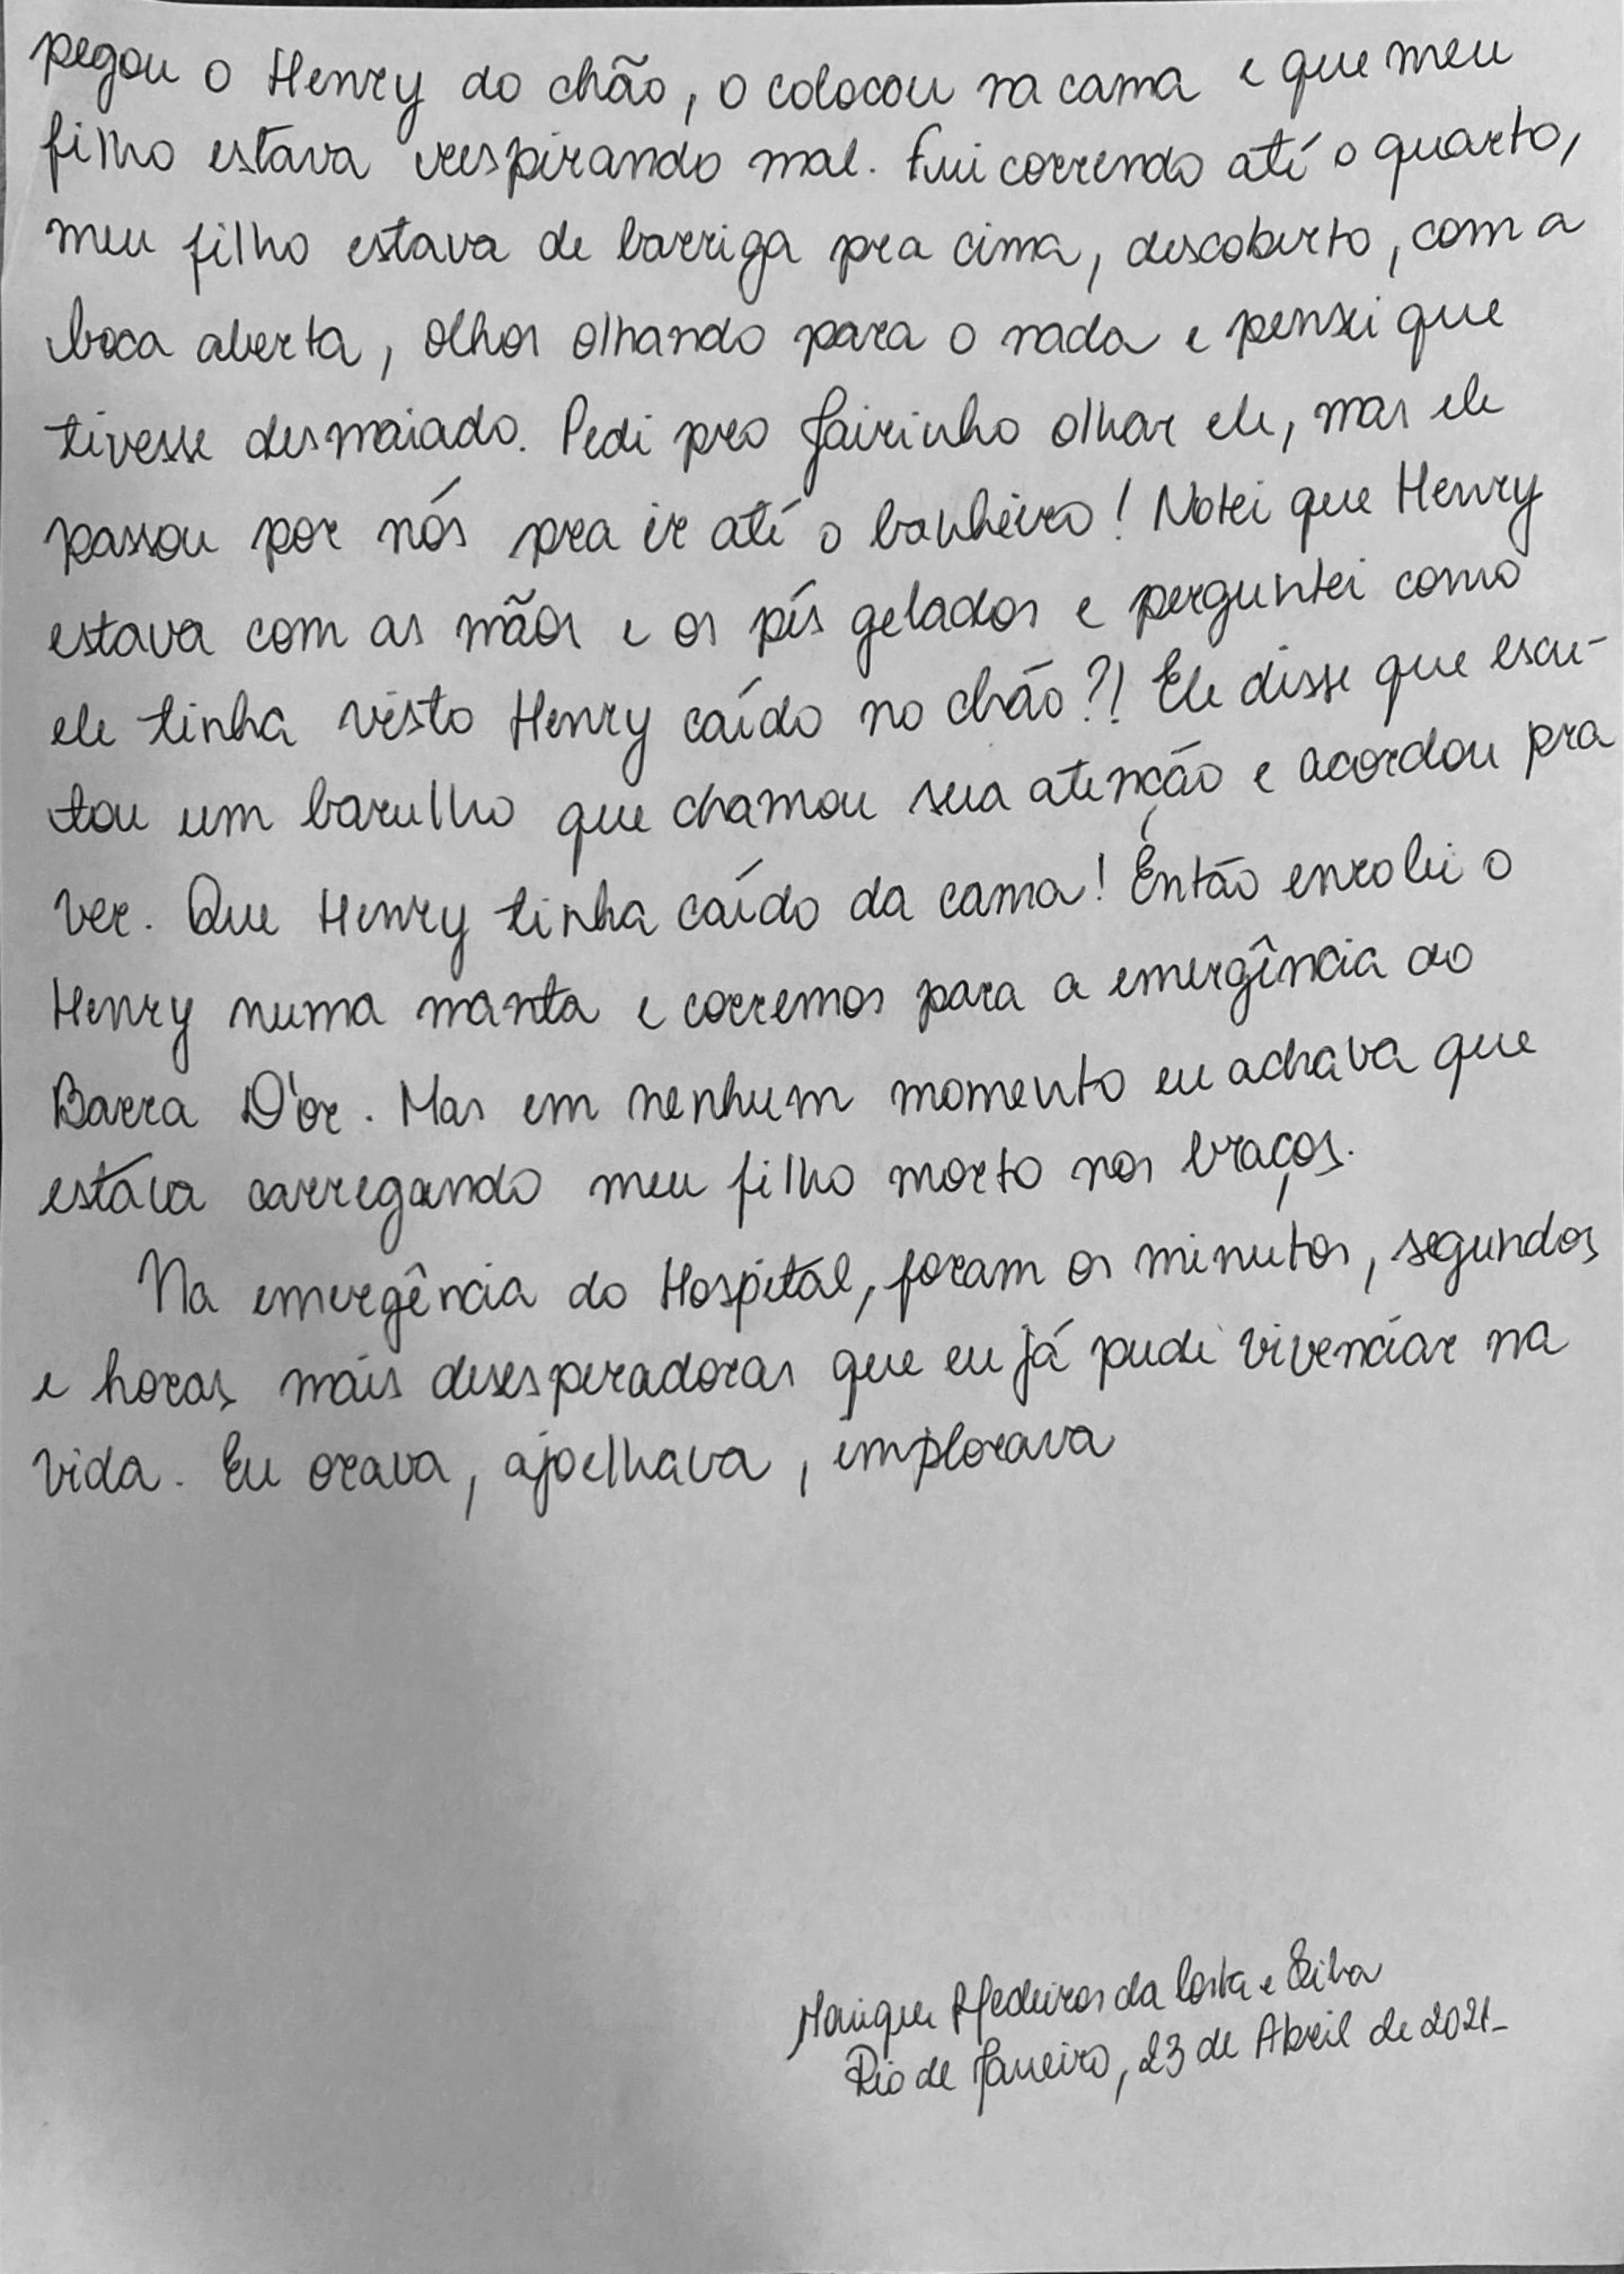 pegou o Henry do chão, o colocou na cama e que meu
filho estava respirando mal. Fui correndo até o quarto,
meu filho estava de barriga pra cima, descoberto, com a
boca aberta, olhos olhando para o nada e pensei que
tivesse desmaiado. Pedi pro Jairinho olhar ele, mas ele
passou por nós pra ir até o banheiro! Notei que Henry
estava com as mãos e os pés gelados e perguntei como
ele tinha visto Henry caído no chão?! Ele disse que escu-
tou um barulho que chamou sua atenção e acordou pra
ver. Que Henry tinha caído da cama! Então enrolei o
Henry numa manta e corremos para a emergência do
Barra D'or. Mas em nenhum momento eu achava que
estava carregando meu filho morto nos braços.
Na emergência do Hospital, foram os minutos, segundos
e horas mais desesperadoras que eu já pude vivenciar na
vida. Eu orava, ajoelhava, implorava
Monique Medeiros da Costa e Silva
Rio de Janeiro, 23 de Abril de 2021-